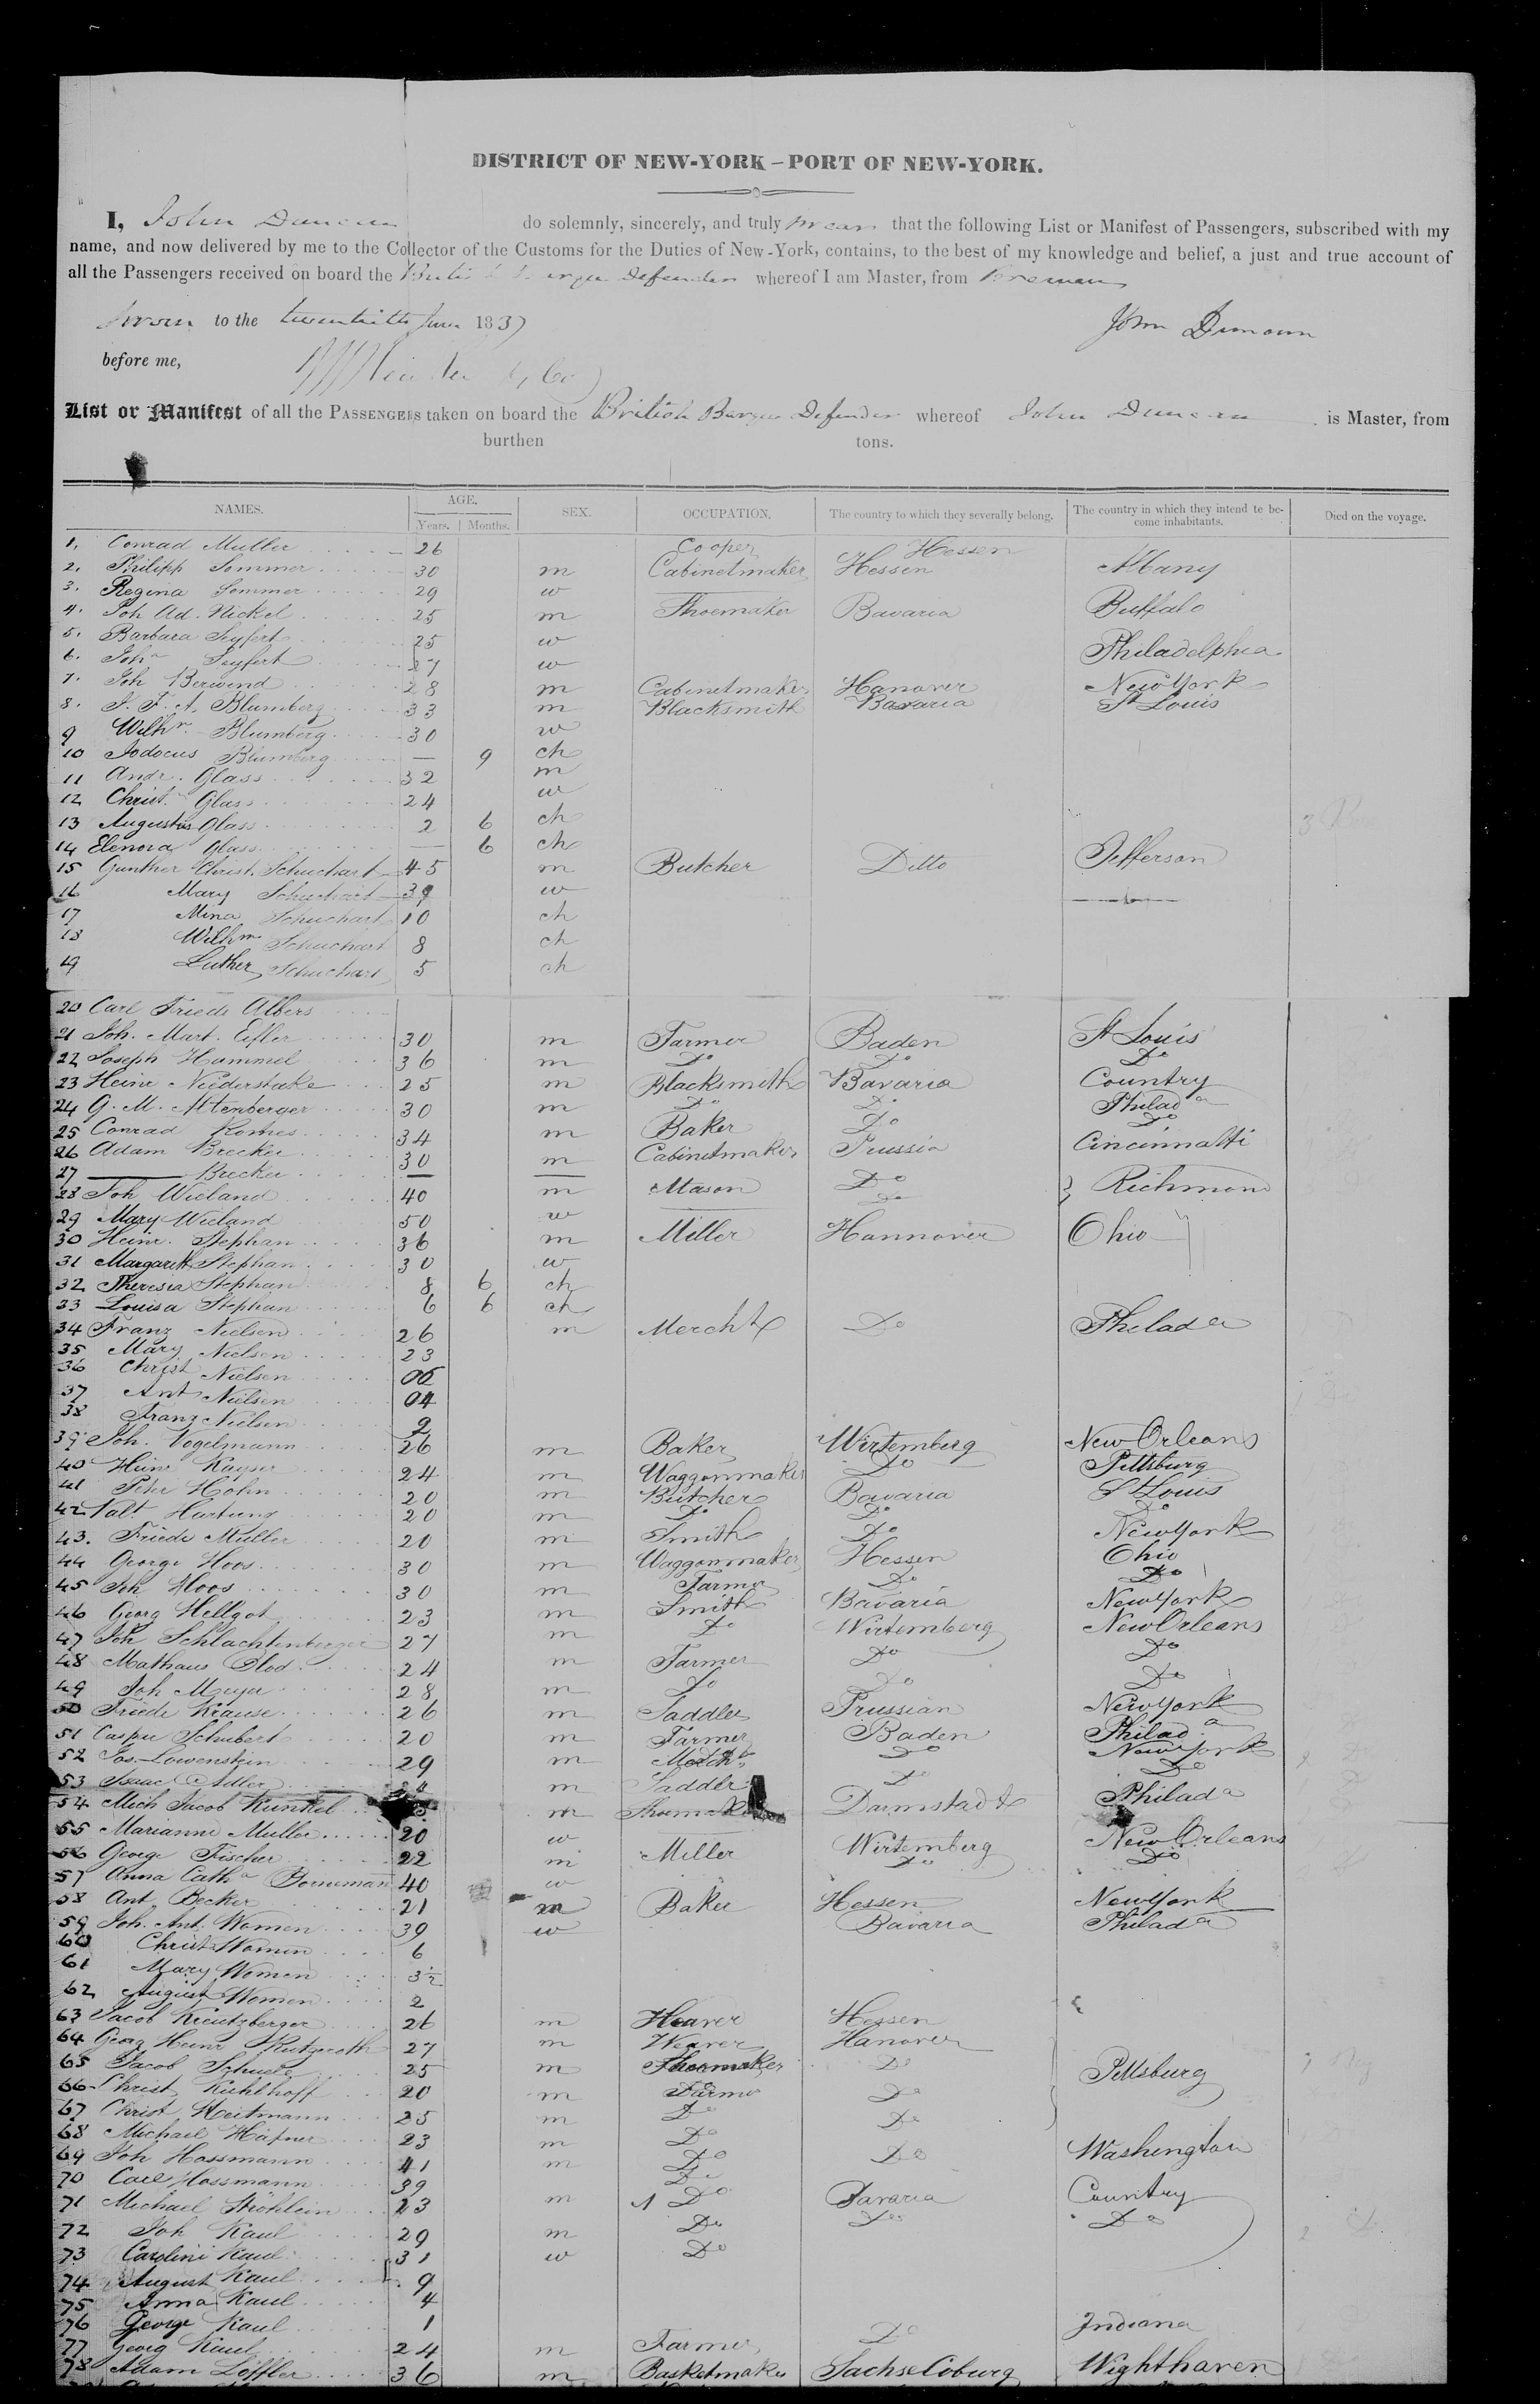 DISTRICT OF NEW-YORK – PORT OF NEW-YORK.
I, John Duncan do solemnly, sincerely, and truly swear that the following List or Manifest of Passengers, subscribed with my
name, and now delivered by me to the Collector of the Customs for the Duties of New-York, contains, to the best of my knowledge and belief, a just and true account of
all the Passengers received on board the British Barque Defender whereof I am Master, from Bremen
sworn to the twentieth June 1837 John Duncan
before me,
List or Manifest of all the PASSENGERS taken on board the British Barque Defender whereof John Duncan is Master, from
burthen tons.
NAMES. AGE. Years. Months. SEX. OCCUPATION. The country to which they severally belong. The country in which they intend to become inhabitants. Died on the voyage.
1. Conrad Muller 26 Cooper Hessen
2. Philipp Sommer 30 m Cabinetmaker Hessen Albany
3. Regina Sommer 29 w
4. Joh Ad. Nickel 25 m Shoemaker Bavaria Buffalo
5. Barbara Seyfert 25 w
6. Joha Seyfert 27 w Philadelphia
7. Joh Berwind 28 m Cabinetmaker Hanover New York
8. J. F. A. Blumberg 33 m Blacksmith Bavaria St Louis
9 Wilhm Blumberg 30 w
10 Jodocus Blumberg — 9 ch
11 Andr. Glass 32 m
12 Christ. Glass 24 w
13 Augustus Glass 2 6 ch
14 Elenora Glass — 6 ch
15 Gunther Christ. Schuchart 45 m Butcher Ditto Jefferson
16 Mary Schuchart 39 w
17 Mina Schuchart 10 ch
18 Wilhm Schuchart 8 ch
19 Luther Schuchart 5 ch
20 Carl Friedr Albers
21 Joh. Mart. Eifler 30 m Farmer Baden St Louis
22 Joseph Hammel 36 m Do Do Do
23 Heinr Niederstake 25 m Blacksmith Bavaria Country
24 G. M. Altenberger 30 m Do Do Philada
25 Conrad Romes 34 m Baker Do Do
26 Adam Brecker 30 m Cabinetmaker Prussia Cincinnatti
27 — Brecker — —
28 Joh Wieland 40 m Mason Do Richmond
29 Mary Wieland 50 w — Do
30 Heinr. Stephan 36 m Miller Hannover Ohio
31 Margarett Stephan 30 w
32 Theresia Stephan 8 6 ch
33 Louisa Stephan 6 6 ch
34 Franz Nielsen 26 m Mercht Do Philada
35 Mary Nielsen 23
36 Christ Nielsen 06
37 Ant Nielsen 04
38 Franz Nielsen 2
39 Joh. Vogelmann 26 m Baker Wirtemberg New Orleans
40 Heinr Kayser 24 m Waggonmaker Do Pittsburg
41 Peter Hohn 20 m Butcher Bavaria St Louis
42 Valt Hartung 20 m Do Do Do
43. Friedr Muller 20 m Smith Do New York
44 George Hoos 30 m Waggonmaker Hessen Ohio
45 Joh Hoos 30 m Farmer Do Do
46 Georg Hellgot 23 m Smith Bavaria New York
47 Joh Schlachtenberger 27 m Do Wirtemberg New Orleans
48 Mathaus Plod 24 m Farmer Do Do
49 Joh Meyer 28 m Do Do Do
50 Friedr Krause 26 m Saddler Prussian New York
51 Casper Schubert 20 m Farmer Baden Philada
52 Jos. Lowenstein 29 m Mercht Do New York
53 Isaac Adler m Saddler Do Do
54 Mich Jacob Kunkel m Shoemaker Darmstadt Philada
55 Marianne Muller 20 w — Wirtemberg New Orleans
56 George Fischer 22 m Miller Do Do
57 Anna Catha Borneman 40 w
58 Ant Becker 21 m Baker Hessen New York
59 Joh. Ant. Women 39 w Bavaria Philada
60 Christ Women 6
61 Mary Women 3½
62 August Women 2
63 Jacob Kreutzberger 26 m Weaver Hessen
64 Georg Heinr 27 m Weaver Hanover
65 Jacob Schuele 25 m Shoemaker Do Pittsburg
66 Christ Kuhlhoff 20 m Farmer Do
67 Christ Heitmann 25 m Do Do
68 Michael Hafner 23 m Do
69 Joh Hossmann 41 m Do Do Washington
70 Carl Hossmann 39 Do
71 Michael Strohlein 23 m Do Bavaria Country
72 Joh Kaul 29 m Do Do Do
73 Carolini Kaul 31 w Do
74 August Kaul 9
75 Anna Kaul 4
76 George Kaul 1
77 Georg Kaul 24 m Farmer Do Indiana
78 Adam Löffler 36 m Basketmaker Sachse Coburg Wighthaven